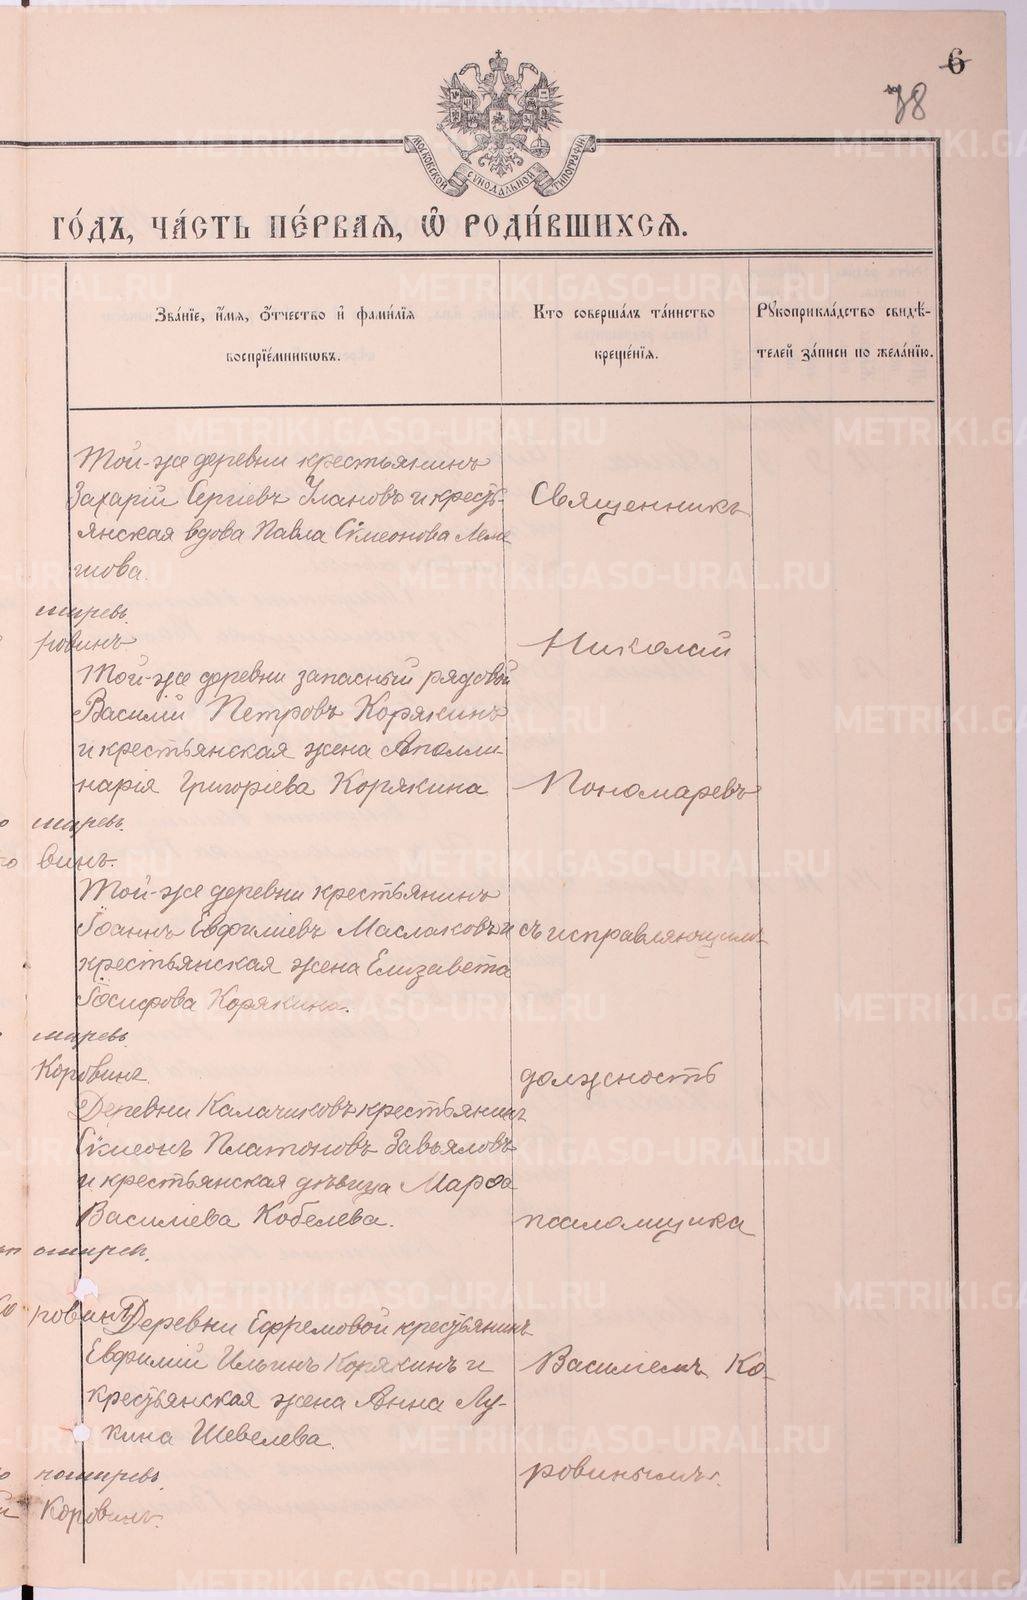 6
78
МОСКОВСКОЙ СѴНОДАЛЬНОЙ ТИПОГРАФІИ
ГО́ДЪ, ЧА́СТЬ ПЕ́РВАЯ, Ѽ РОДИ́ВШИХСЯ.
Зва́нїе, и҆́мя, ѻ҆́тчество и҆ фами́лїя
воспрїе́мникѡвъ.
Кто соверша́лъ та́инство
креще́нїя.
Рꙋкоприкла́дство свидѣ́-
телей за́писи по жела́нїю.
Той-же деревни крестьянинъ
Захарій Сергіевъ Улановъ и кресть-
янская вдова Павла Сѵмеонова Леме
шова.
Священникъ
Николай
Той-же деревни запасный рядовой
Василій Петровъ Корякинъ
и крестьянская жена Аполли-
нарія Григоріева Корякина
Пономаревъ
винъ.
Той-же деревни крестьянинъ
Іоаннъ Евфиміевъ Маслаковъ и
крестьянская жена Елизавета
Іосифова Корякина.
съ исправляющимъ
Коровинъ.
должность
Деревни Калачиковъ крестьянинъ
Сѵмеонъ Платоновъ Завьяловъ
и крестьянская дѣвица Марѳа
Василіева Кобелева.
псаломщика
ровинъ
Деревни Ефремовой крестьянинъ
Евфимій Ильинъ Корякинъ и
крестьянская жена Анна Лу-
кина Шевелева.
Василіемъ Ко-
ровинымъ.
Коровинъ.
METRIKI.GASO-URAL.RU